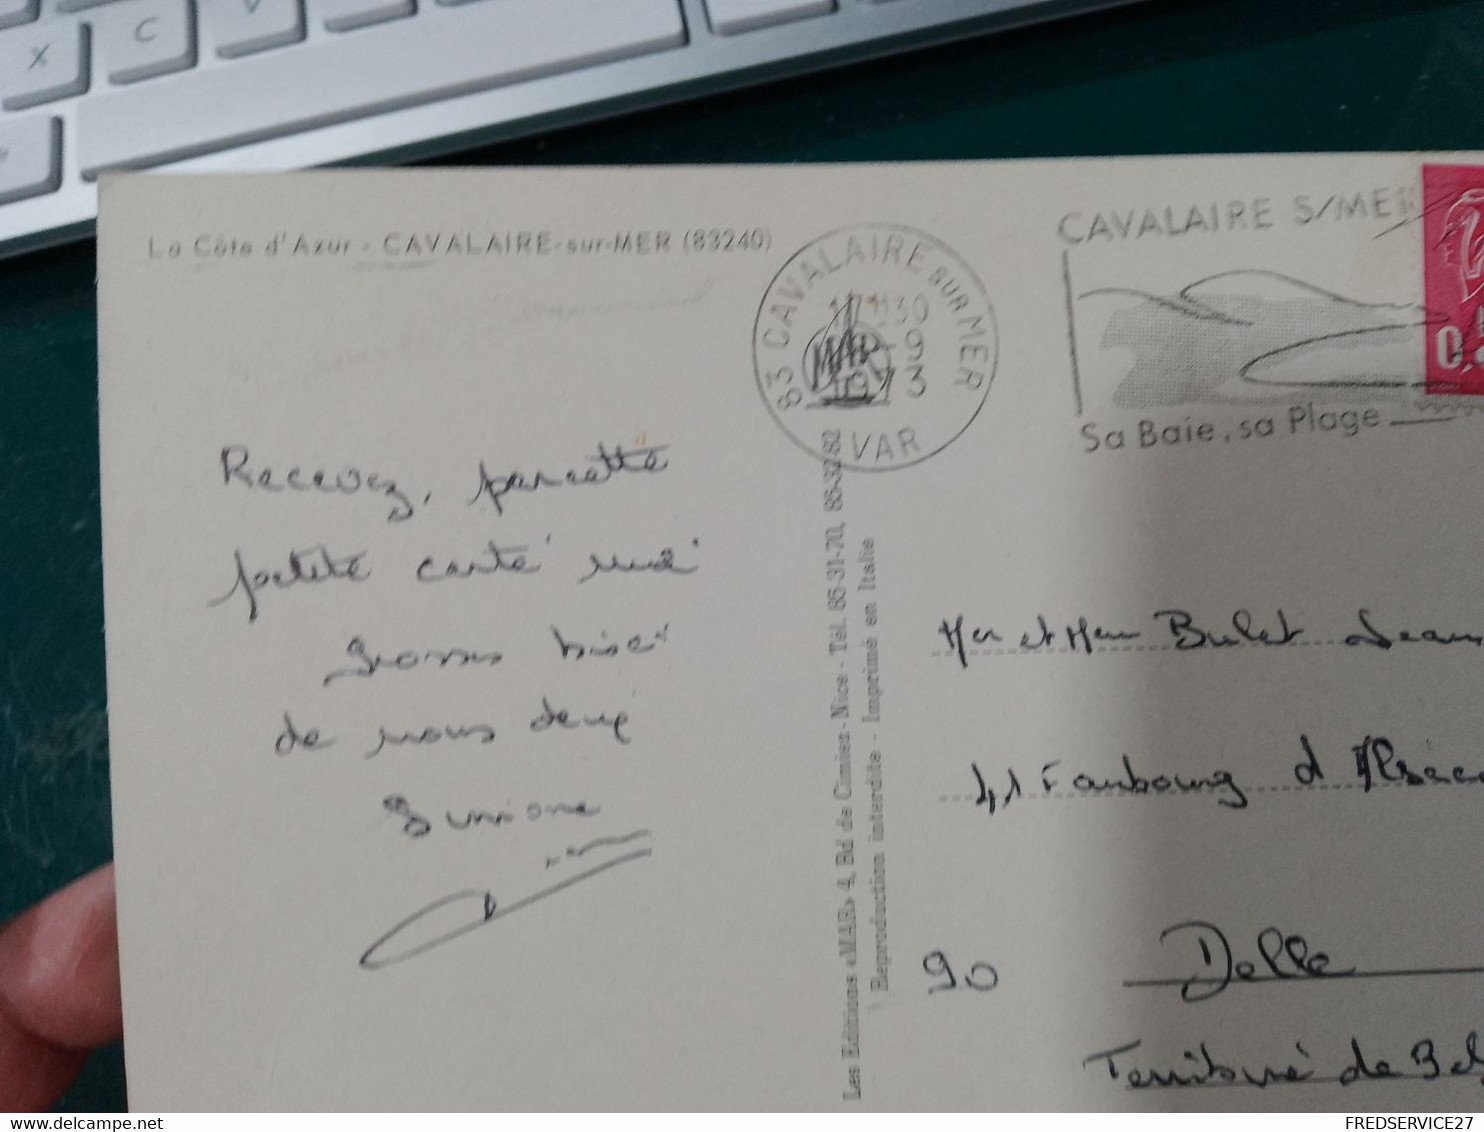 X C V
La Côte d'Azur - CAVALAIRE-sur-MER (83240)
83 CAVALAIRE SUR MER
VAR
CAVALAIRE S/MER
Sa Baie, sa Plage
0,5
Recevez, par cette
petite carte une
grosses bises
de nous deux
Simone
Les Editions «MAR» 4, Bd de Cimiez - Nice - Tél. 85-31-70, 85-32-82
Reproduction interdite - Imprimé en Italie
Mr et Mme Bulet Jean
41 Faubourg d Alsace
90 Delle
Territoire de Bel
FREDSERVICE27